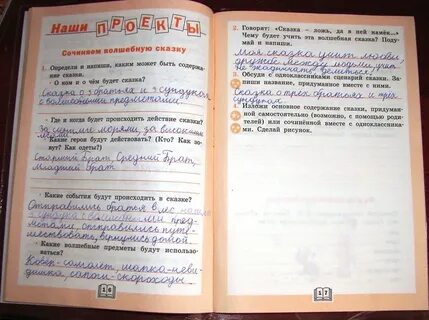 Наши ПРОЕКТЫ
Сочиняем волшебную сказку
1. Определи и напиши, каким может быть содержание сказки.
· О ком и о чём будет сказка?
Сказка о 3 братьях и 3 сундуках
с волшебными предметами.
· Где и когда будет происходить действие сказки?
За синими морями, за высокими
горами
· Какие герои будут действовать? (Кто? Как зовут? Как одеты?)
Старший брат, Средний брат,
Младший брат
· Какие события будут происходить в сказке?
Отправились братья в лес, нашли
3 сундука с волшебными пред-
метами, отправились путе-
шествовать, вернулись домой
· Какие волшебные предметы будут использоваться?
Ковёр-самолёт, шапка-неви-
димка, сапоги-скороходы
16
2. Говорят: «Сказка — ложь, да в ней намёк...»
Чему будет учить эта волшебная сказка? Подумай и напиши.
Моя сказка учит любви
дружбе между людьми, учит
не жадничать, делиться!
3. Обсуди с одноклассниками сценарий сказки. Запиши название, придуманное вместе с одноклассниками.
Сказка о трёх братьях и трёх
сундуках
4. Изложи основное содержание сказки, придуманной самостоятельно (возможно, с помощью родителей) или сочинённой вместе с одноклассниками. Сделай рисунок.
17